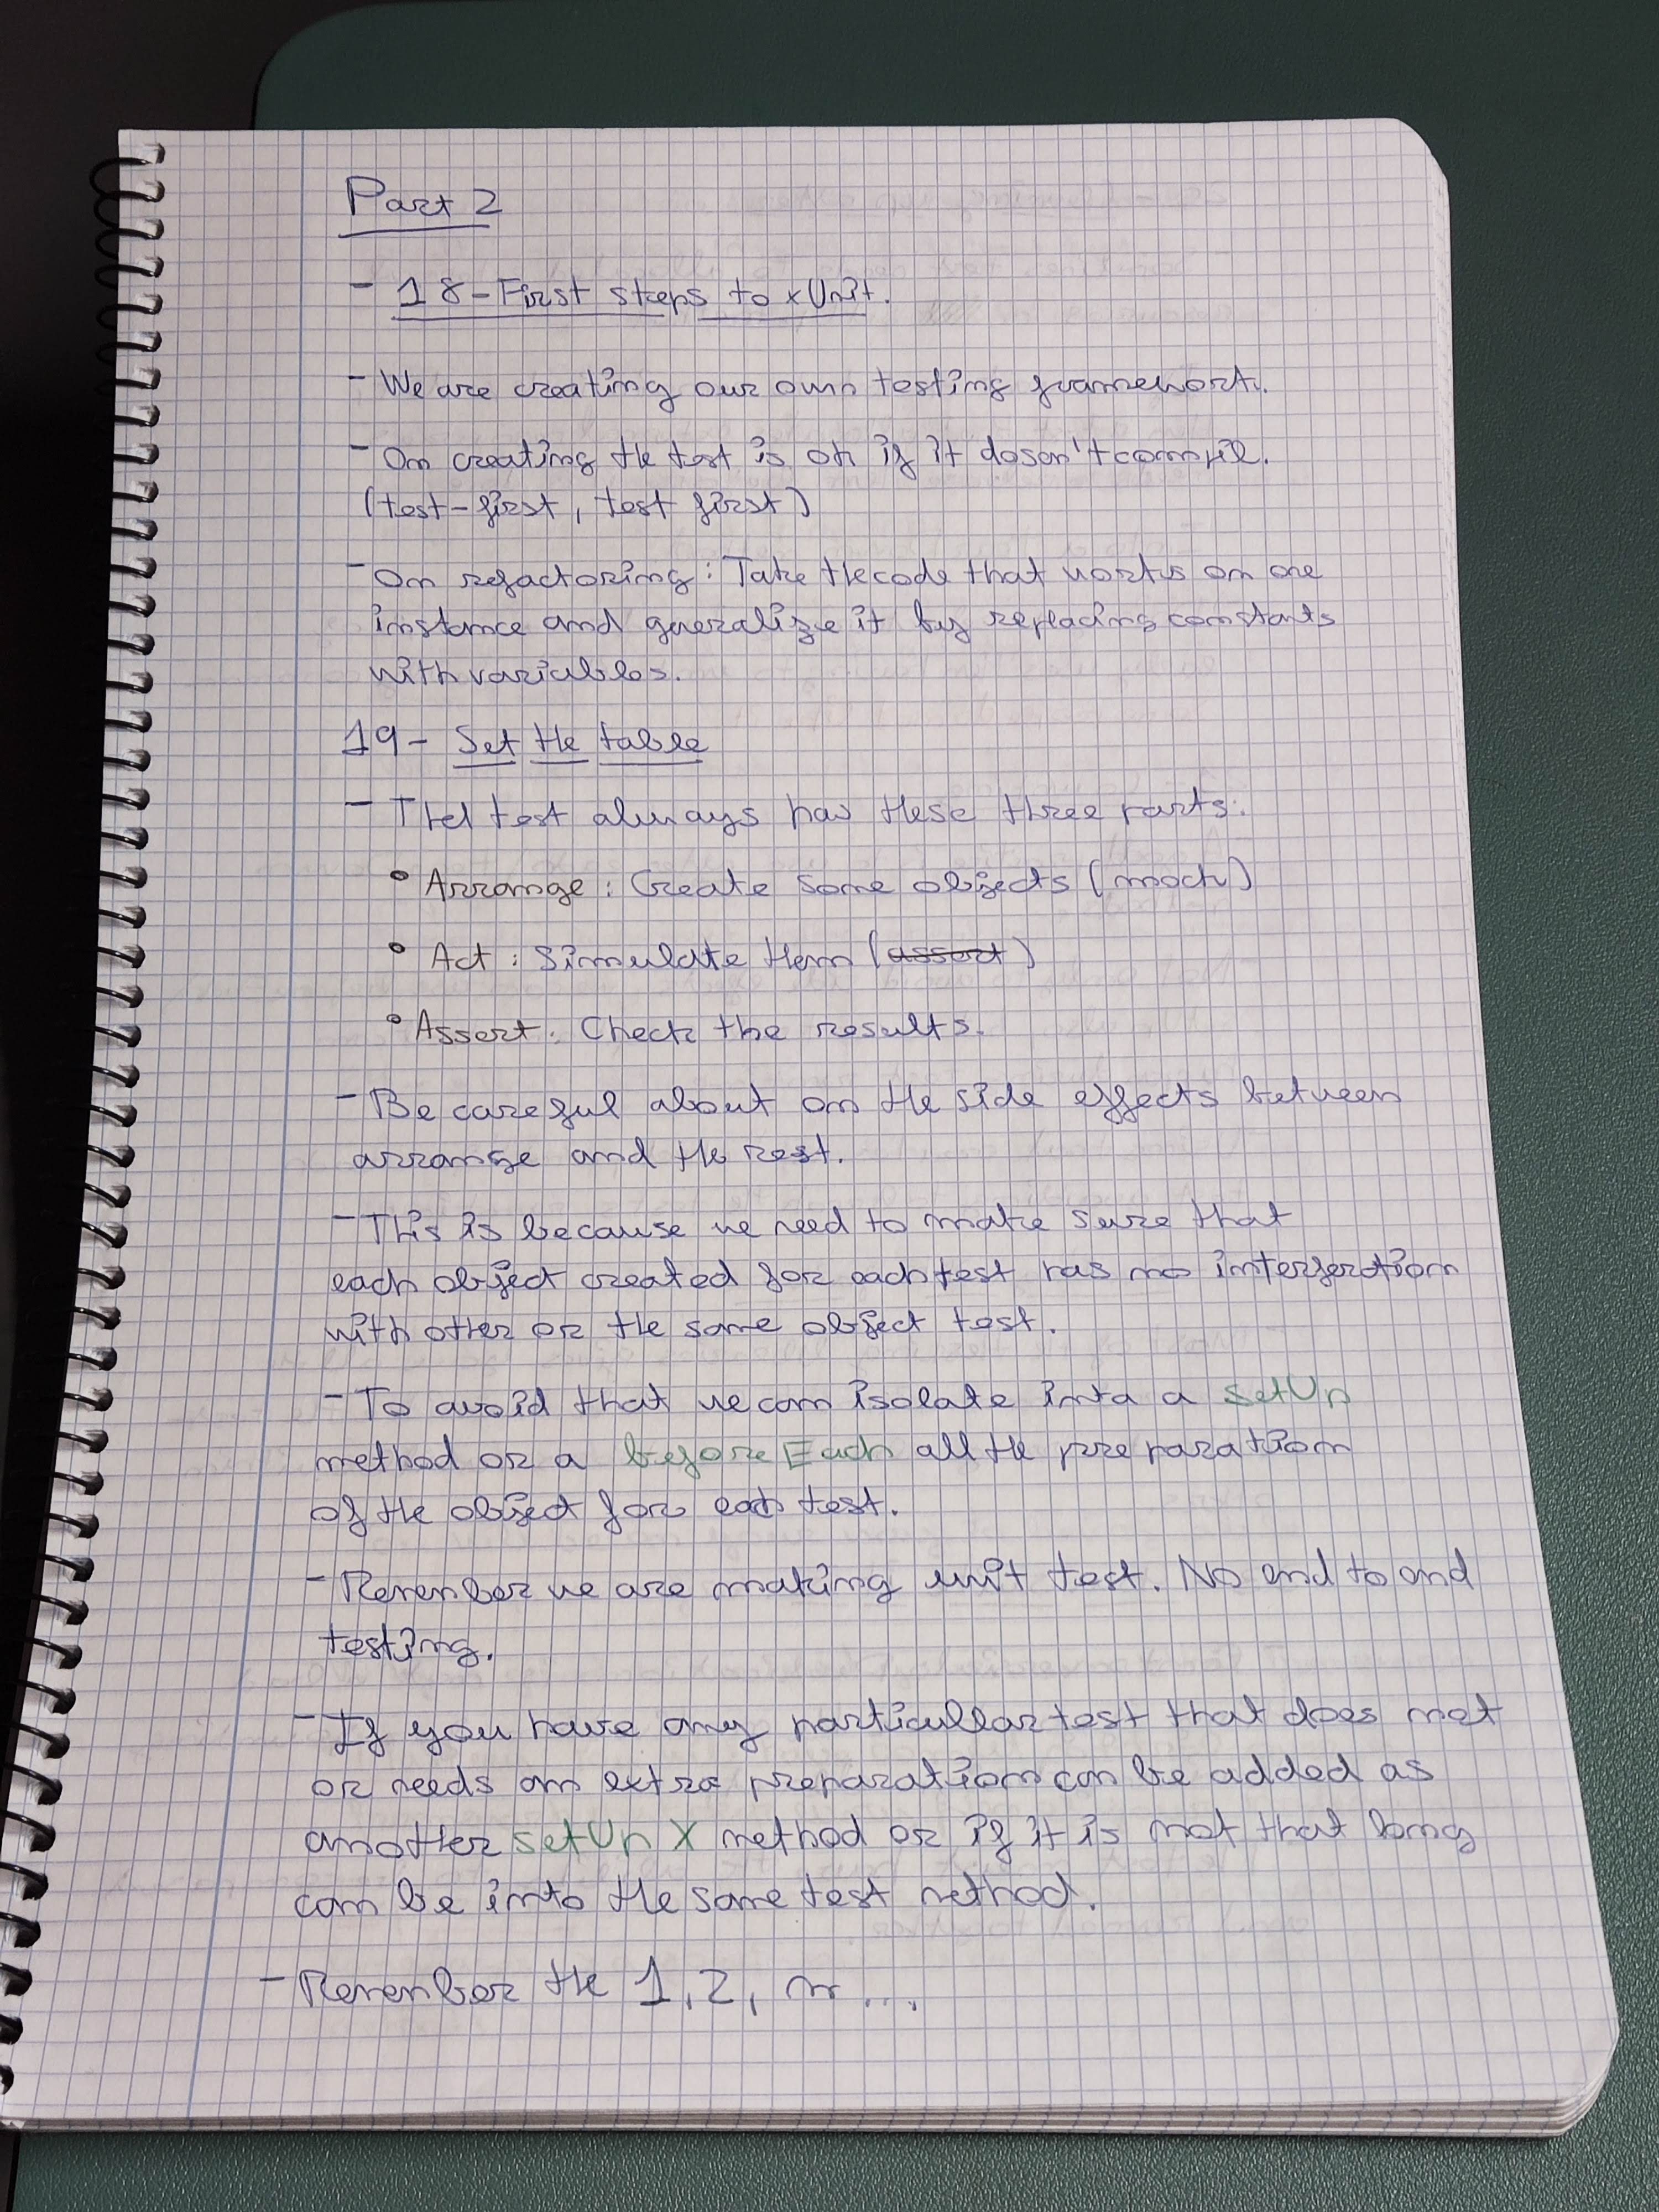 Part 2
- 18 - First steps to xUnit.
- We are creating our own testing framework.
- On creating the test is ok if it doesn't compil.
(test-first, test first)
- On refactoring: Take the code that works on one
instance and generalize it by replacing constants
with variables.
19 - Set the table
- The test always has these three parts:
• Arrange: Create some objects (mock)
• Act: Simulate them (assert)
• Assert: Check the results.
- Be careful about on the side effects between
arrange and the rest.
- This is because we need to make sure that
each object created for each test has no
with other or the same object test.
- To avoid that we can isolate into a setUp
method or a beforeEach all the preparation
of the object for each test.
- Remenber we are making unit test. No end to end
testing.
- If you have any particullar test that does not
or needs an extra preparation can be added as
another setUp X method or if it is not that long
can be into the same test method.
- Remenber the 1, 2, n ...